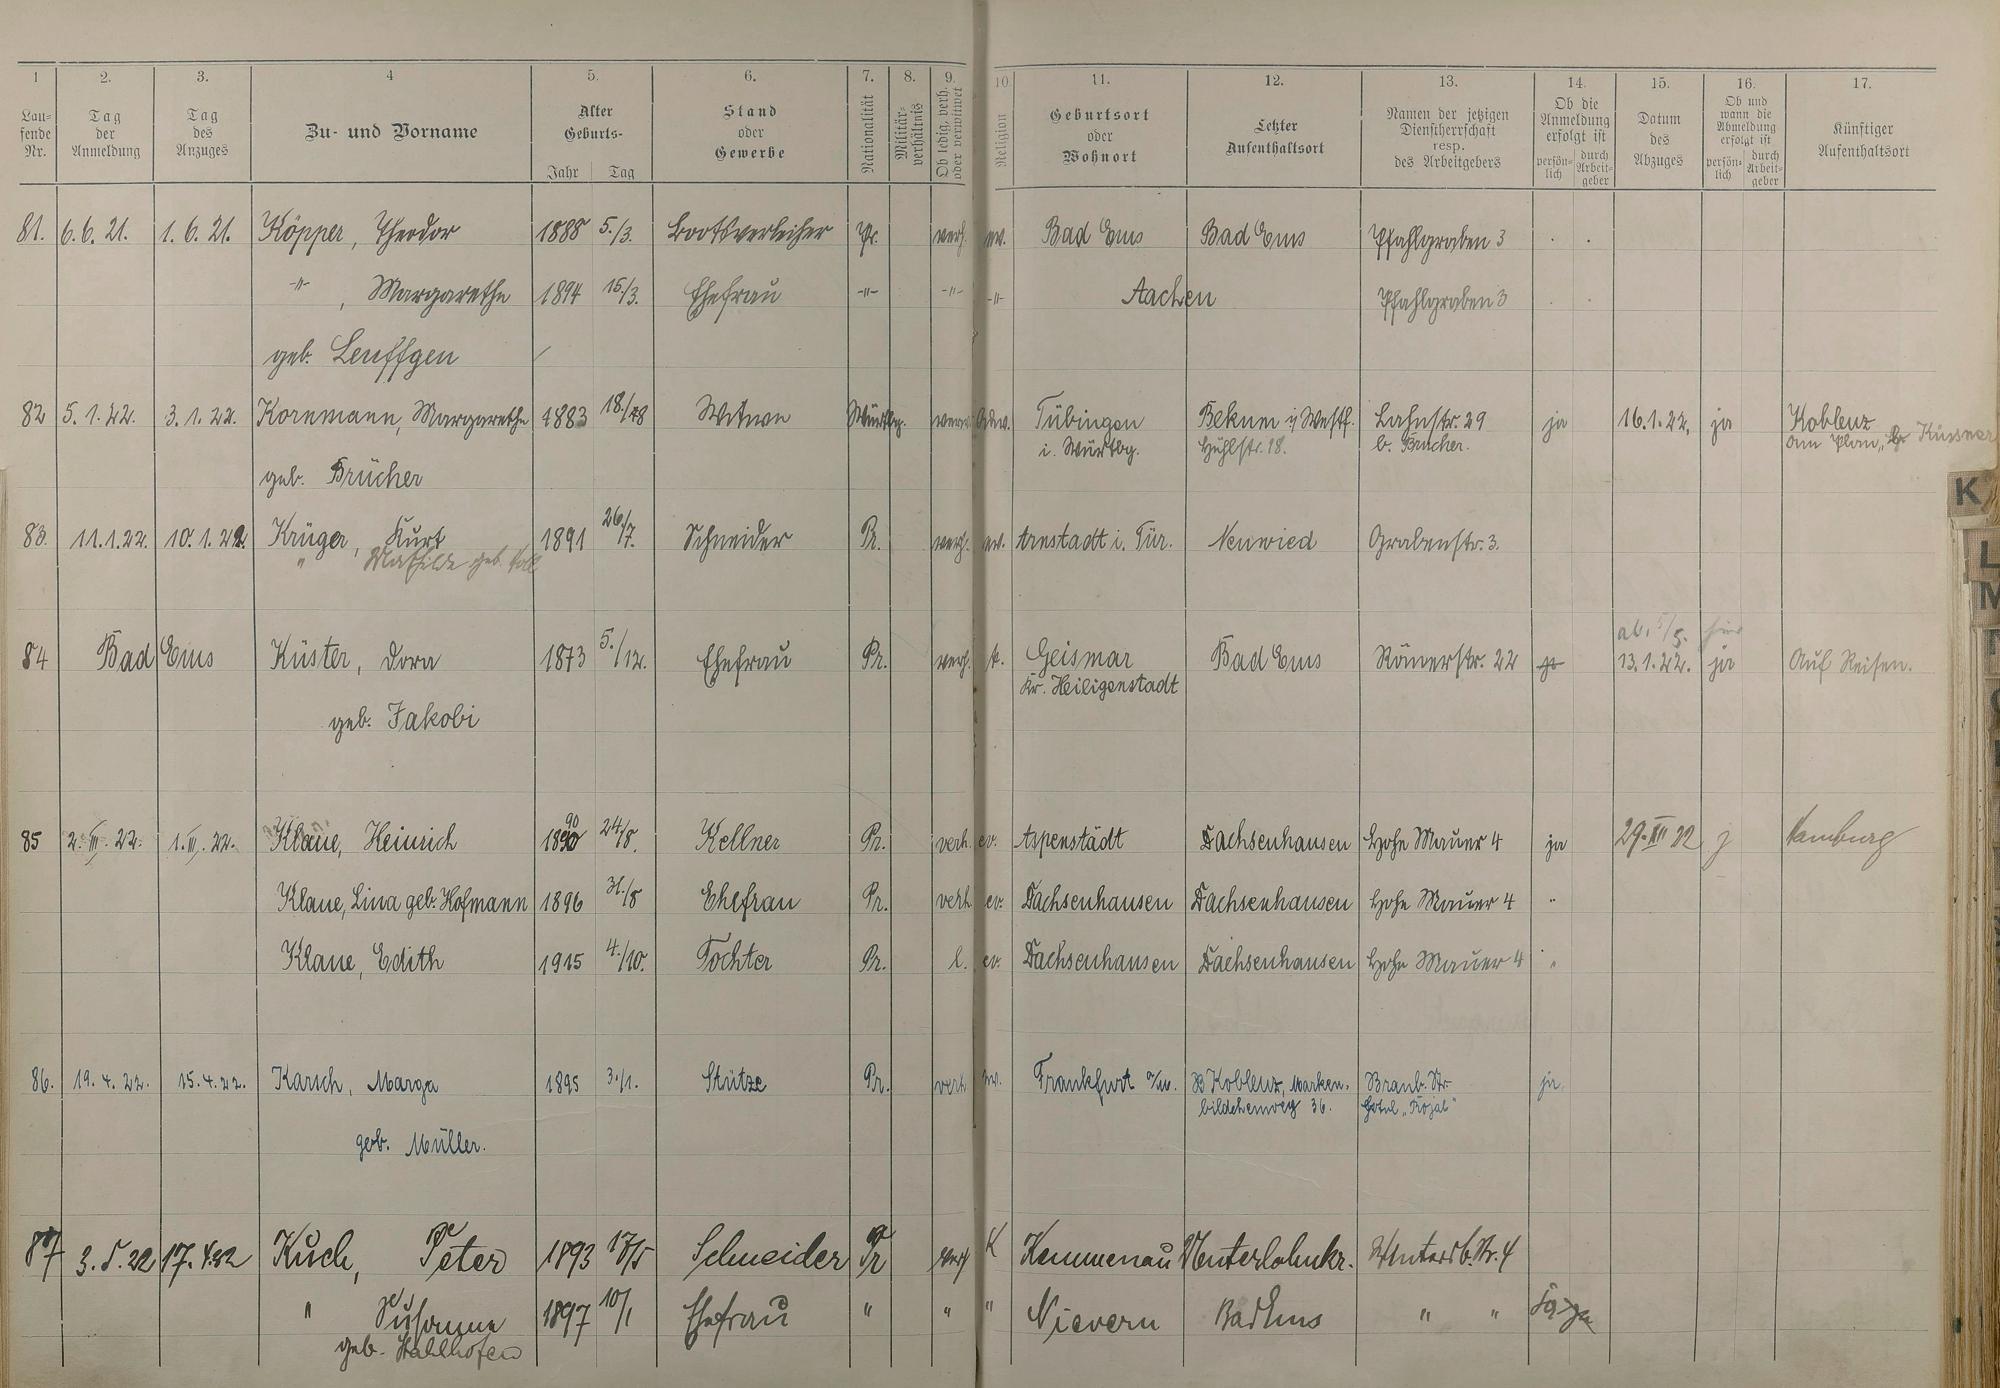 1 2. 3. 4 5. 6. 7. 8. 9. 10 11. 12. 13. 14. 15. 16. 17.
Lau-
fende
Nr.
Tag
der
Anmeldung
Tag
des
Anzuges
Zu- und Vorname
Alter
Geburts-
Jahr Tag
Stand
oder
Gewerbe
Nationalität
Militär-
verhältnis
Ob ledig, verh.
oder verwitwet
Religion
Geburtsort
oder
Wohnort
Letzter
Aufenthaltsort
Namen der jetzigen
Dienstherrschaft
resp.
des Arbeitgebers
Ob die
Anmeldung
erfolgt ist
persön-
lich
durch
Arbeit-
geber
Datum
des
Abzuges
Ob und
wann die
Abmeldung
erfolgt ist
persön-
lich
durch
Arbeit-
geber
Künftiger
Aufenthaltsort
81. 6.6.21. 1.6.21. Köpper, Theodor 1888 5./3. Bootsverleiher Pr. verh. ev. Bad Ems Bad Ems Pfahlgraben 3
-"- , Margarethe 1894 15/3. Ehefrau -"- -"- -"- Aachen Pfahlgraben 3
geb. Leuffgen
82 5.1.22. 3.1.22. Kornmann, Margarethe 1883 18./ Witwe Württbg. Tübingen Bekum i/ Westf. Lahnstr. 29 ja 16.1.22. ja Koblenz
i. Württbg. Hühlstr. 18. b. Brücher. am Plan, Küssner
geb. Brücher
83. 11.1.22. 10.1.22. Krüger, Kurt 1891 26/7. Schneider Pr. verh. ev. Arnstadt i. Tür. Neuwied Grabenstr. 3.
" Mathilde geb.
ab. 5/5. hier
84 Bad Ems Küster, Dora 1873 5./12. Ehefrau Pr. verh. k. Geismar Bad Ems Römerstr. 22 ja 13.1.22. ja Auf Reisen.
Kr. Heiligenstadt
geb. Jakobi
85 2.III.22. 1.III.22. Klaue, Heinrich 1890 24/8. Kellner Pr. verh. ev. Aspenstädt Dachsenhausen Hohe Mauer 4 ja 29.III 22 j Hamburg
Klaue, Lina geb. Hofmann 1896 31./8 Ehefrau Pr. verh. ev. Dachsenhausen Dachsenhausen Hohe Mauer 4 "
Klaue, Edith 1915 4./10. Tochter Pr. l. ev. Dachsenhausen Dachsenhausen Hohe Mauer 4 "
86. 19.4.22. 15.4.22. Karsch, Marga 1895 3./1. Stütze Pr. verh. ev. Frankfurt a/M. Koblenz, Marken- Braub. Str. ja
bildchenweg 36. Hotel „Rojal"
geb. Müller.
87 3.5.22 17.4.22 Kuch, Peter 1893 17/5 Schneider Pr verh K Kemmenau Unterlahnkr. Wintersb. Str. 4
" Susanne 1897 10/1 Ehefrau " " " Nievern Bad Ems " "
geb. Stahlhofen
K
L
M